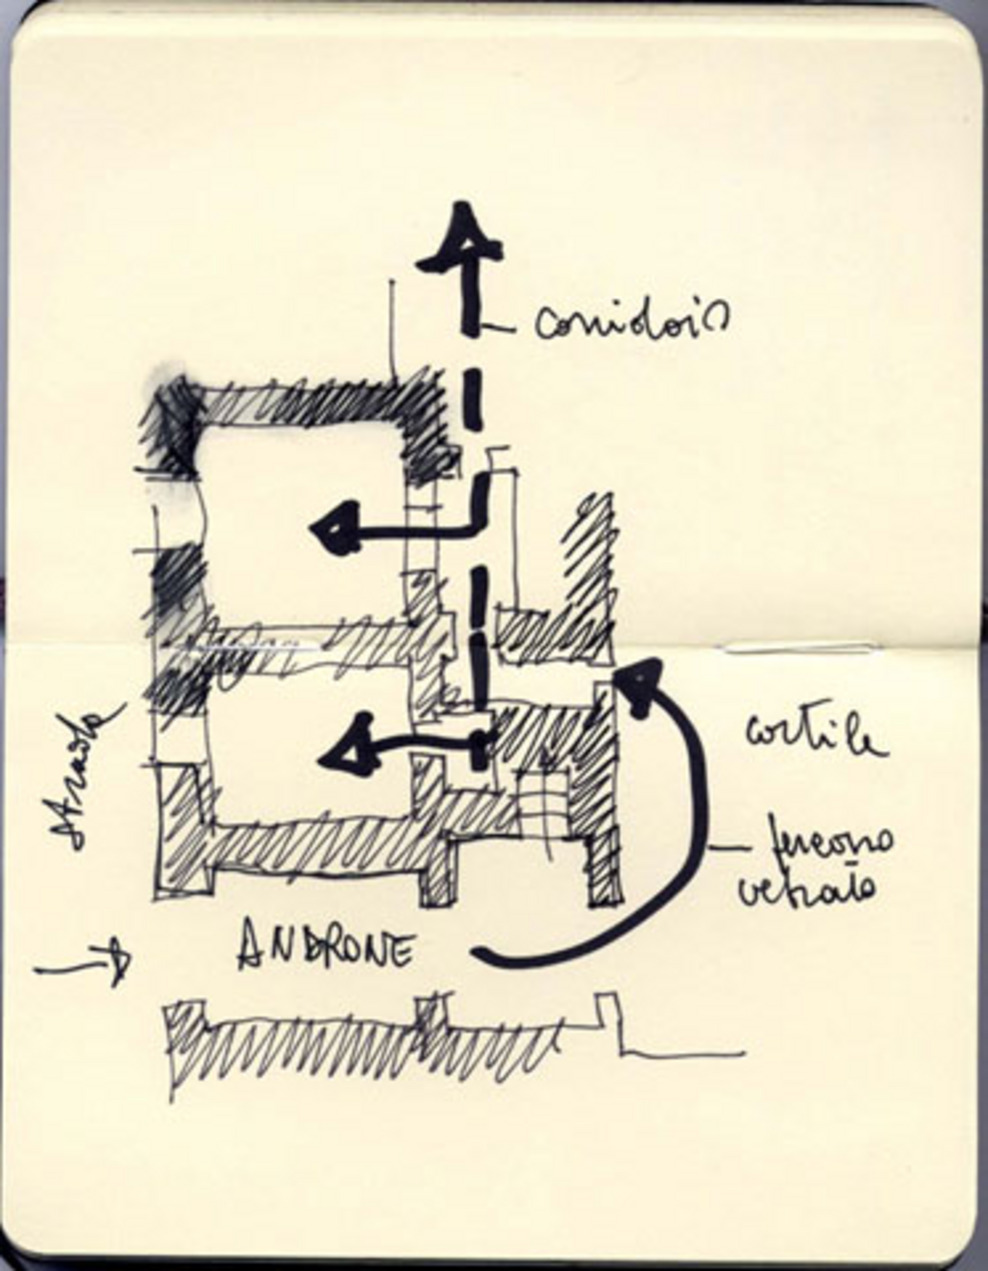 corridoio
strada
cortile
percorso
vetrato
ANDRONE